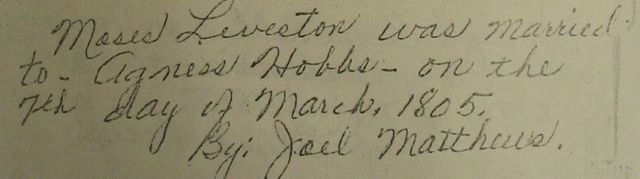 Moses Leveston was married
to - Agness Hobbs - on the
7th day of March, 1805.
By: Joel Matthews.